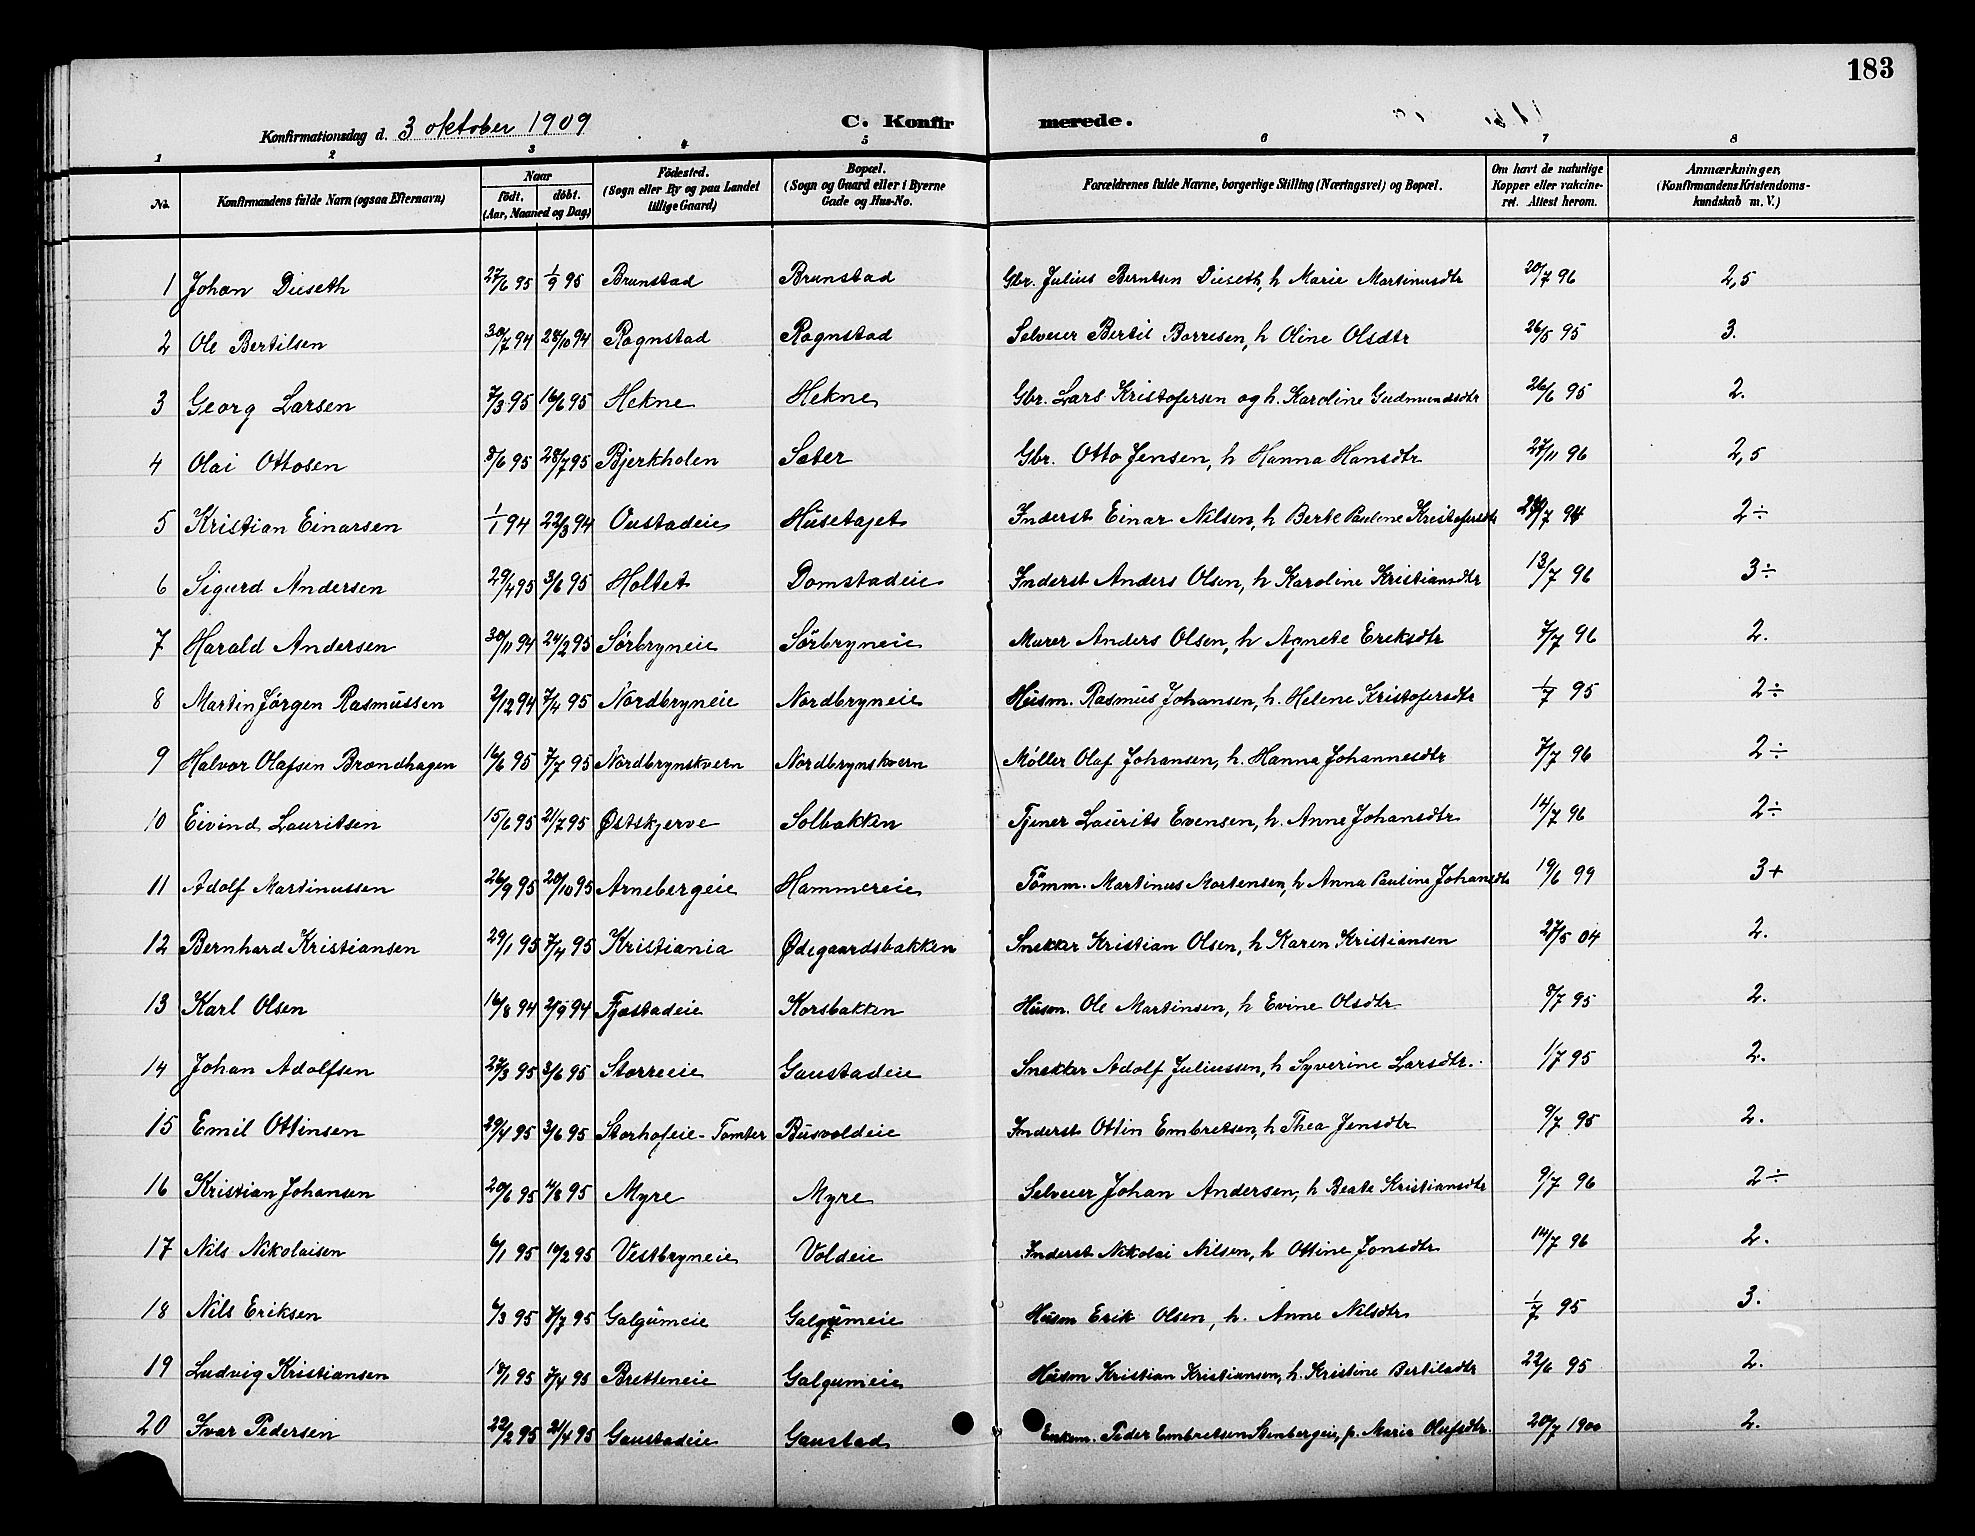 183
Konfirmationsdag d. 3 oktober 1909 C. Konfirmerede.
1 2 3 4 5 6 7 8
No. Konfirmandens fulde Navn (ogsaa Efternavn) Naar født. døbt. (Aar, Maaned og Dag) Fødested. (Sogn eller By og paa Landet tillige Gaard) Bopæl. (Sogn og Gaard eller i Byerne Gade og Hus-No. Forældrenes fulde Navne, borgerlige Stilling (Næringsvei) og Bopæl. Om havt de naturlige Kopper eller vakcineret. Attest herom. Anmærkninger, (Konfirmandens Kristendomskundskab m. V.)
1 Johan Diseth 27/6 95 1/9 95 Brunstad Brunstad Gbr. Julius Berntsen Diseth, h Marie Martinusdtr 20/7 96 2,5
2 Ole Bertilsen 30/7 94 28/10 94 Rognstad Rognstad Selveier Bertil Borresen, h Oline Olsdtr 26/5 95 3.
3 Georg Larsen 7/3 95 16/6 95 Hekne Hekne Gbr. Lars Kristofersen og h. Karoline Gudmundsdtr 26/6 95 2.
4 Olai Ottosen 8/6 95 28/7 95 Bjerkholen Sæter Gbr. Otto Jensen, h Hanna Hansdtr 27/11 96 2,5
5 Kristian Einarsen 1/1 94 22/3 94 Oustadeie Husetajet Inderst Einar Nilsen, h Berte Pauline Kristofersdtr 2÷
6 Sigurd Andersen 29/4 95 3/6 95 Holtet Domstadeie Inderst Anders Olsen, h Karoline Kristiansdtr 13/7 96 3÷
7 Harald Andersen 30/11 94 24/2 95 Sørbryneie Sørbryneie Murer Anders Olsen, h Agnete Eriksdtr 7/7 96 2.
8 Martin Jørgen Rasmussen 2/12 94 7/4 95 Nordbryneie Nordbryneie Husm. Rasmus Johansen, h. Helene Kristofersdtr 1/7 95 2÷
9 Halvor Olafsen Brændhagen 16/6 95 7/7 95 Nordbrynskvern Nordbrynskvern Møller Olaf Johansen, h. Hanna Johannesdtr 7/7 96 2÷
10 Eivind Lauritsen 15/6 95 21/7 95 Østskjerve Solbakken Tjener Laurits Evensen, h. Anne Johansdtr 14/7 96 2÷
11 Adolf Martinussen 26/9 95 20/10 95 Arnebergeie Hammereie Tømm. Martinus Mortensen, h Anna Pauline Johansdtr 19/6 99 3+
12 Bernhard Kristiansen 29/1 95 7/4 95 Kristiania Ødegaardsbakken Snekker Kristian Olsen, h Karen Kristiansen 27/5 04 2.
13 Karl Olsen 16/8 94 94 Fjæstadeie Korsbakken Husm. Ole Martinsen, h Evine Olsdtr 8/7 95 2.
14 Johan Adolfsen 27/3 95 3/6 95 Storreeie Gaustadeie Snekker Adolf Juliussen, h Syverine Larsdtr. 1/7 95 2.
15 Emil Ottinsen 29/4 95 3/6 95 Storhofeie-Tomter Busvoldeie Inderst Ottin Embretsen, h Thea Jensdtr 9/7 95 2.
16 Kristian Johansen 20/6 95 4/8 95 Myre Myre Selveier Johan Andersen, h Beate Kristiansdtr 9/7 96 2÷
17 Nils Nikolaisen 6/1 95 10/2 95 Vestbryneie Voldeie Inderst Nikolai Nilsen, h Ottine Jonsdtr 14/7 96 2.
18 Nils Eriksen 6/3 95 7/7 95 Galgumeie Galgumeie Husm Erik Olsen, h. Anne Nilsdtr 1/7 95 3.
19 Ludvig Kristiansen 18/1 95 7/4 95 Bretteneie Galgumeie Husm Kristian Kristiansen, h. Kristine Bertilsdtr 22/6 95 2.
20 Ivar Pedersen 22/2 95 21/4 95 Gaustadeie Gaustad Enkem. Peder Embretsen Stenbergeie, p. Marie Olufsdtr. 20/7 1900 2.